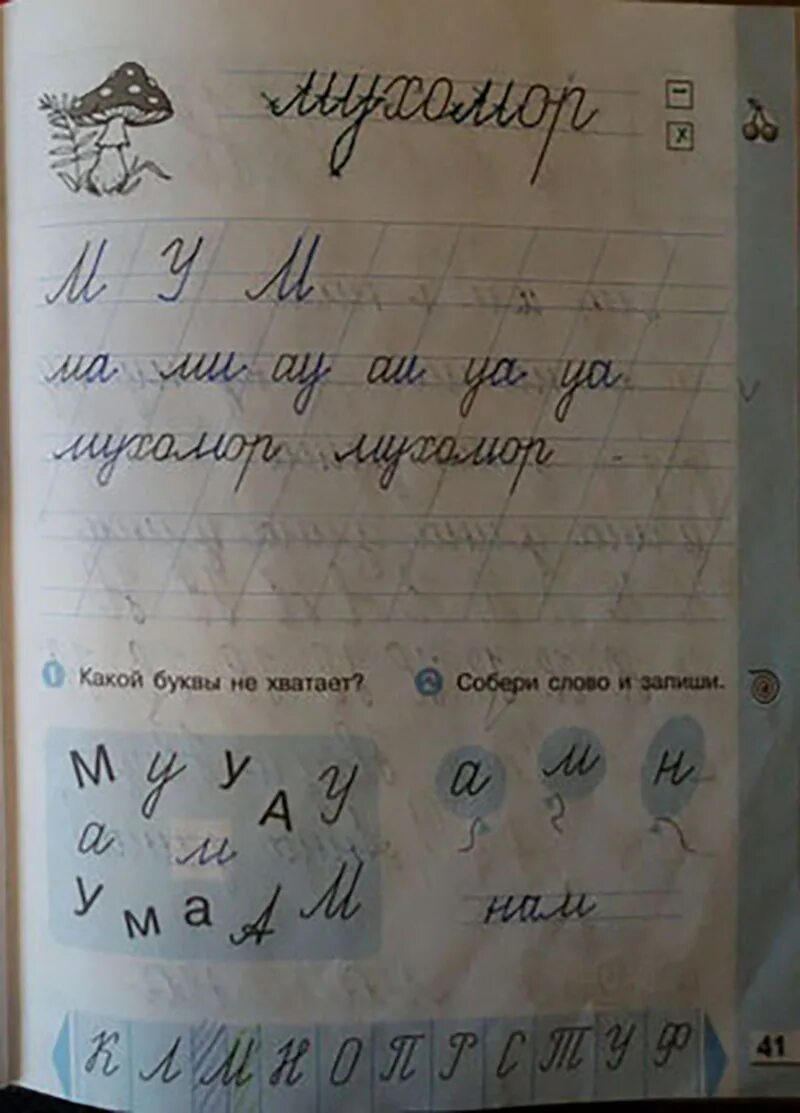 мухомор
М У М
ма ми ау аи уа уа
мухомор мухомор
1 Какой буквы не хватает?
2 Собери слово и запиши.
М у У А У
а м
У м а А М
а м н
нам
К Л М Н О П Р С Т У Ф
41